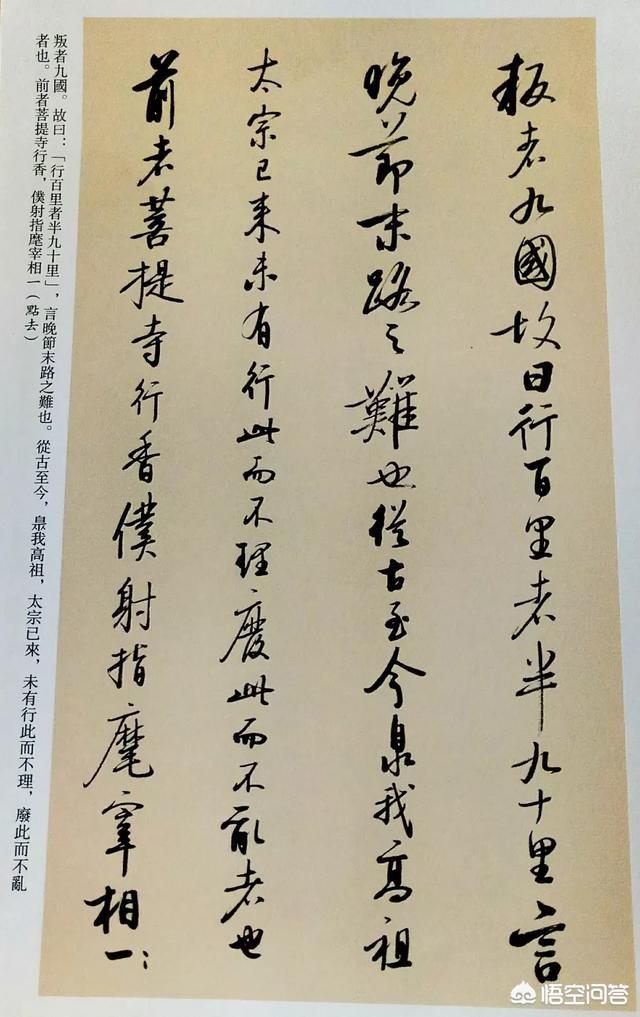 叛者九國故曰行百里者半九十里言
晚節末路之難也從古至今泉我高祖
太宗已來未有行此而不理廢此而不亂者也
前者菩提寺行香僕射指麾宰相一
叛者九國。故曰：「行百里者半九十里」，言晚節末路之難也。從古至今，臮我高祖，太宗已來，未有行此而不理，廢此而不亂
者也。前者菩提寺行香，僕射指麾宰相一（點去）
悟空问答